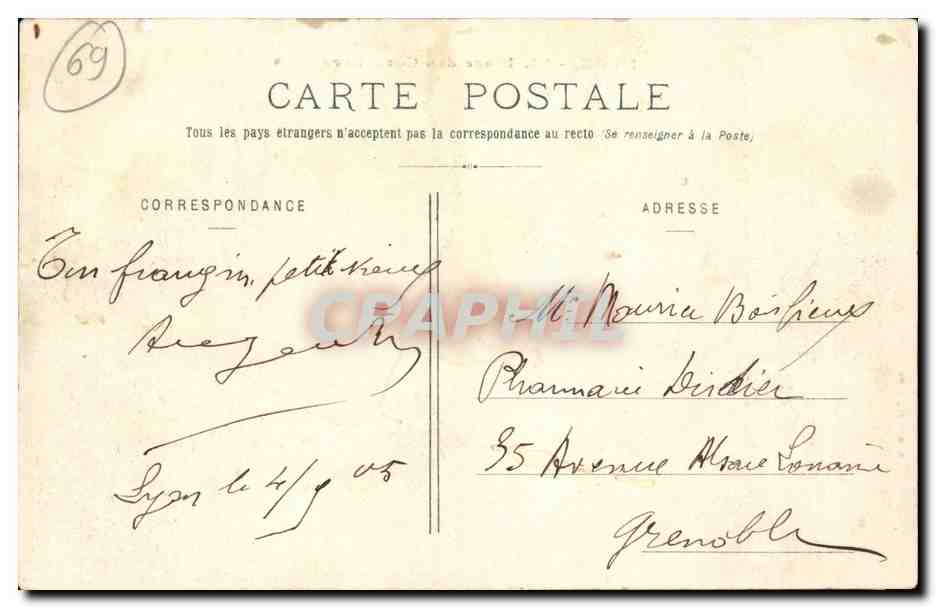 69
CARTE POSTALE
Tous les pays étrangers n'acceptent pas la correspondance au recto (Se renseigner à la Poste)
CORRESPONDANCE
ADRESSE
Ton frangin, petit vieux
Lyon le 4/9 05
Mr Maurice
Pharmacie Didier
35 Avenue Alsace Lorraine
Grenoble
CPAPHIL